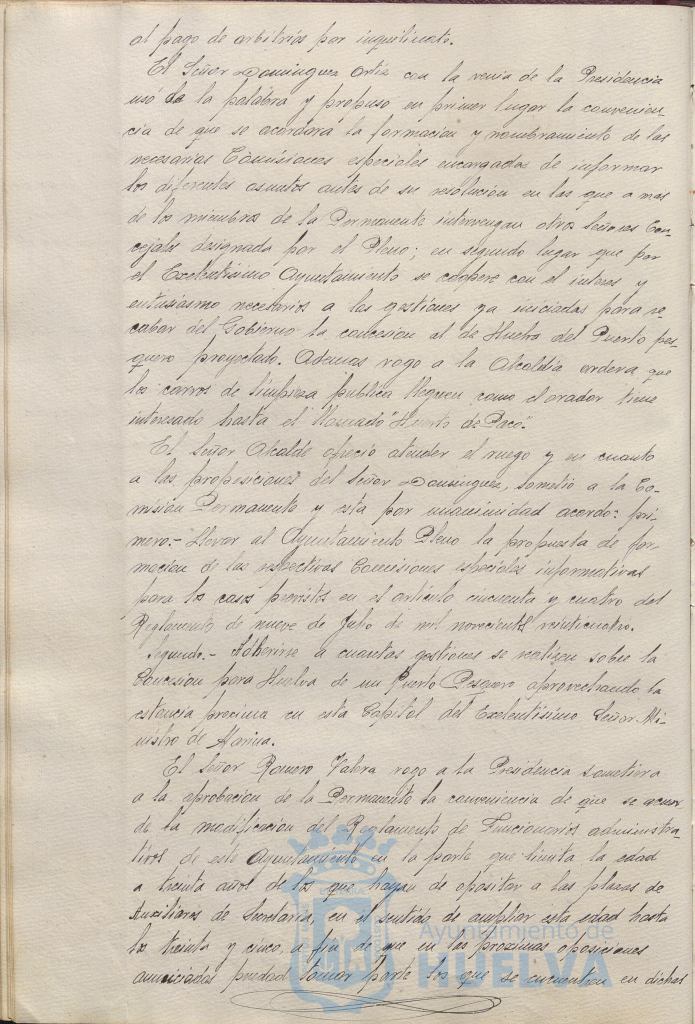 al pago de arbitrios por inquilinato.
El Señor Dominguez Ortiz con la venia de la Presidencia
usó de la palabra y propuso en primer lugar la convenien-
cia de que se acordara la formacion y nombramiento de las
necesarias Comisiones especiales encargadas de informar
los diferentes asuntos antes de su resolucion en las que a mas
de los miembros de la Permanente intervengan otros Señores Con-
cejales designada por el Pleno; en segundo lugar que por
el Excelentisimo Ayuntamiento se coopere con el interes y
entusiasmo necesarios a las gestiones ya iniciadas para re-
cabar del Gobierno la concesion al de Huelva del Puerto pes-
quero proyectado. Ademas rogo a la Alcaldia ordena que
los carros de limpieza publica lleguen como el orador tiene
interesado hasta el llamado "Huerto de Paco".
El Señor Alcalde ofrecio atender el ruego y en cuanto
a las proposiciones del Señor Dominguez, sometio a la Co-
mision Permanente y esta por unanimidad acordo: pri-
mero.- Llevar al Ayuntamiento Pleno la propuesta de for-
macion de las respectivas Comisiones especiales informativas
para los casos previstos en el articulo cincuenta y cuatro del
Reglamento de nueve de Julio de mil novecientos veinticuatro.
Segundo.- Adherirse a cuantas gestiones se realizen sobre la
Concesion para Huelva de un Puerto Pesquero aprovechando la
estancia procima en esta Capital del Excelentisimo Señor Mi-
nistro de Marina.
El Señor Romero Valera rogo a la Presidencia sometiera
a la aprobacion de la Permanente la conveniencia de que se acuer
de la modificacion del Reglamento de Funcionarios administra-
tivos de este Ayuntamiento en la parte que limita la edad
a treinta años de los que hayan de opositar a las plazas de
Auxiliares de Secretaria, en el sentido de ampliar esta edad hasta
los treinta y cinco, a fin de que en las proximas oposiciones
anunciadas puedad tomar parte los que se encuentren en dichas
Ayuntamiento de
HUELVA